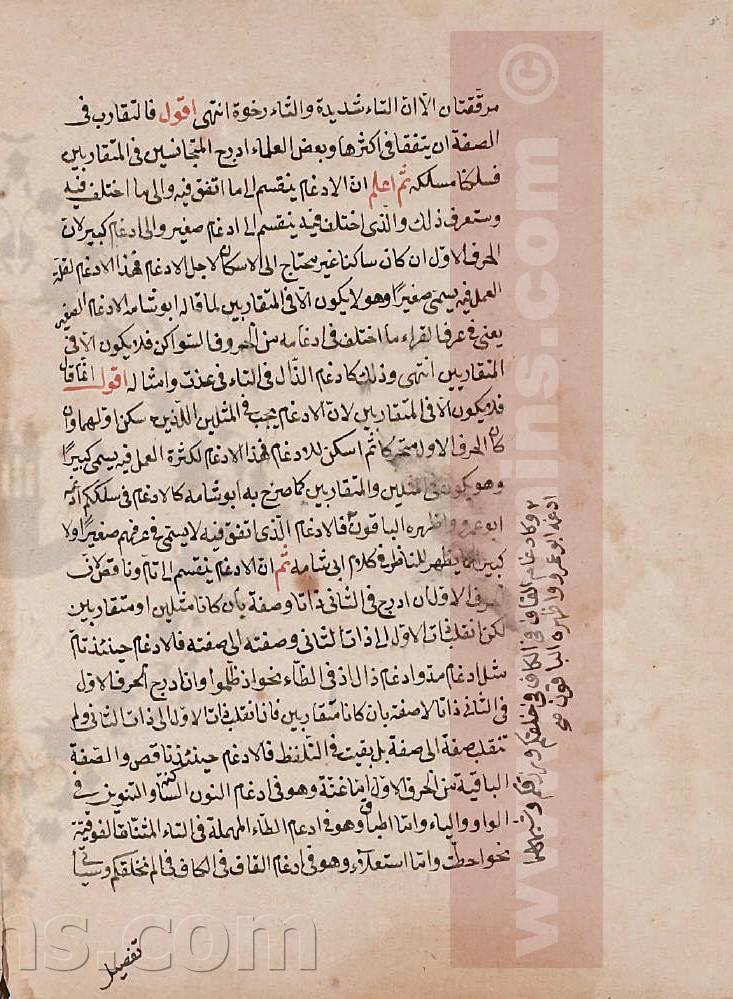 مرققتان الا ان التاء شديدة والثاء رخوة انتهى اقول فالتقارب فى
الصفة ان يتفقا فى اكثرها وبعض العلماء ادرج المتجانسين فى المتقاربين
فسلكنا مسلكه ثم اعلم ان الادغام ينقسم الى ما اتفق فيه والى ما اختلف فيه
وستعرف ذلك والذى اختلف فيه ينقسم الى ادغام صغير والى ادغام كبير لان
الحرف الاول ان كان ساكنا غير محتاج الى الاسكان لاجل الادغام فهذا الادغام لقلة
العمل فيه يسمى صغيرا وهو لا يكون الا فى المتقاربين لما قاله ابو شامه الادغام الصغير
يعنى فى عرف القراء ما اختلف فى ادغامه من الحروف السواكن فلا يكون الا فى
المتقاربين انتهى وذلك كادغام الذال فى التاء فى عذت وامثاله اقول
فلا يكون الا فى المتقاربين لان الادغام يجب فى المثلين اللذين سكن اولهما وان
كان الحرف الاول متحركا ثم اسكن للادغام فهذا الادغام لكثرة العمل فيه يسمى كبيرا
وهو يكون فى المثلين والمتقاربين كما صرح به ابو شامه كالادغام فى سلككم ادغمه
ابو عمرو واظهره الباقون فالادغام الذى اتفق فيه لا يسمى فى عرفهم صغيرا ولا
كبيرا كما يظهر للناظر فى كلام ابى شامه ثم ان الادغام ينقسم الى تام وناقص لان
الحرف الاول ان ادرج فى الثانى ذاتا وصفة بان كانا مثلين او متقاربين
لكن انقلب ذات الاول الى ذات الثانى وصفته الى صفته فالادغام حينئذ تام
مثل ادغام مد وادغام ذال اذ فى الظاء نحو اذ ظلموا وان ادرج الحرف الاول
فى الثانى ذاتا لا صفة بان كانا متقاربين فانقلب ذات الاول الى ذات الثانى ولم
تنقلب صفة الى صفة بل بقيت فى التلفظ فالادغام حينئذ ناقص والصفة
الباقية من الحرف الاول اما غنة وهو فى ادغام النون الساكنة والتنوين فى
الواو والياء واما اطباق وهو فى ادغام الطاء المهملة فى التاء المثناة الفوقية
نحو احطت واما استعلاء وهو فى ادغام القاف فى الكاف فى الم نخلقكم وسيأتى
تفصيل
وكادغام القاف فى الكاف فى خلقكم ورزقكم وشبههما
ادغمه ابو عمرو واظهره الباقون صح
www. ains.com
ns.com
©